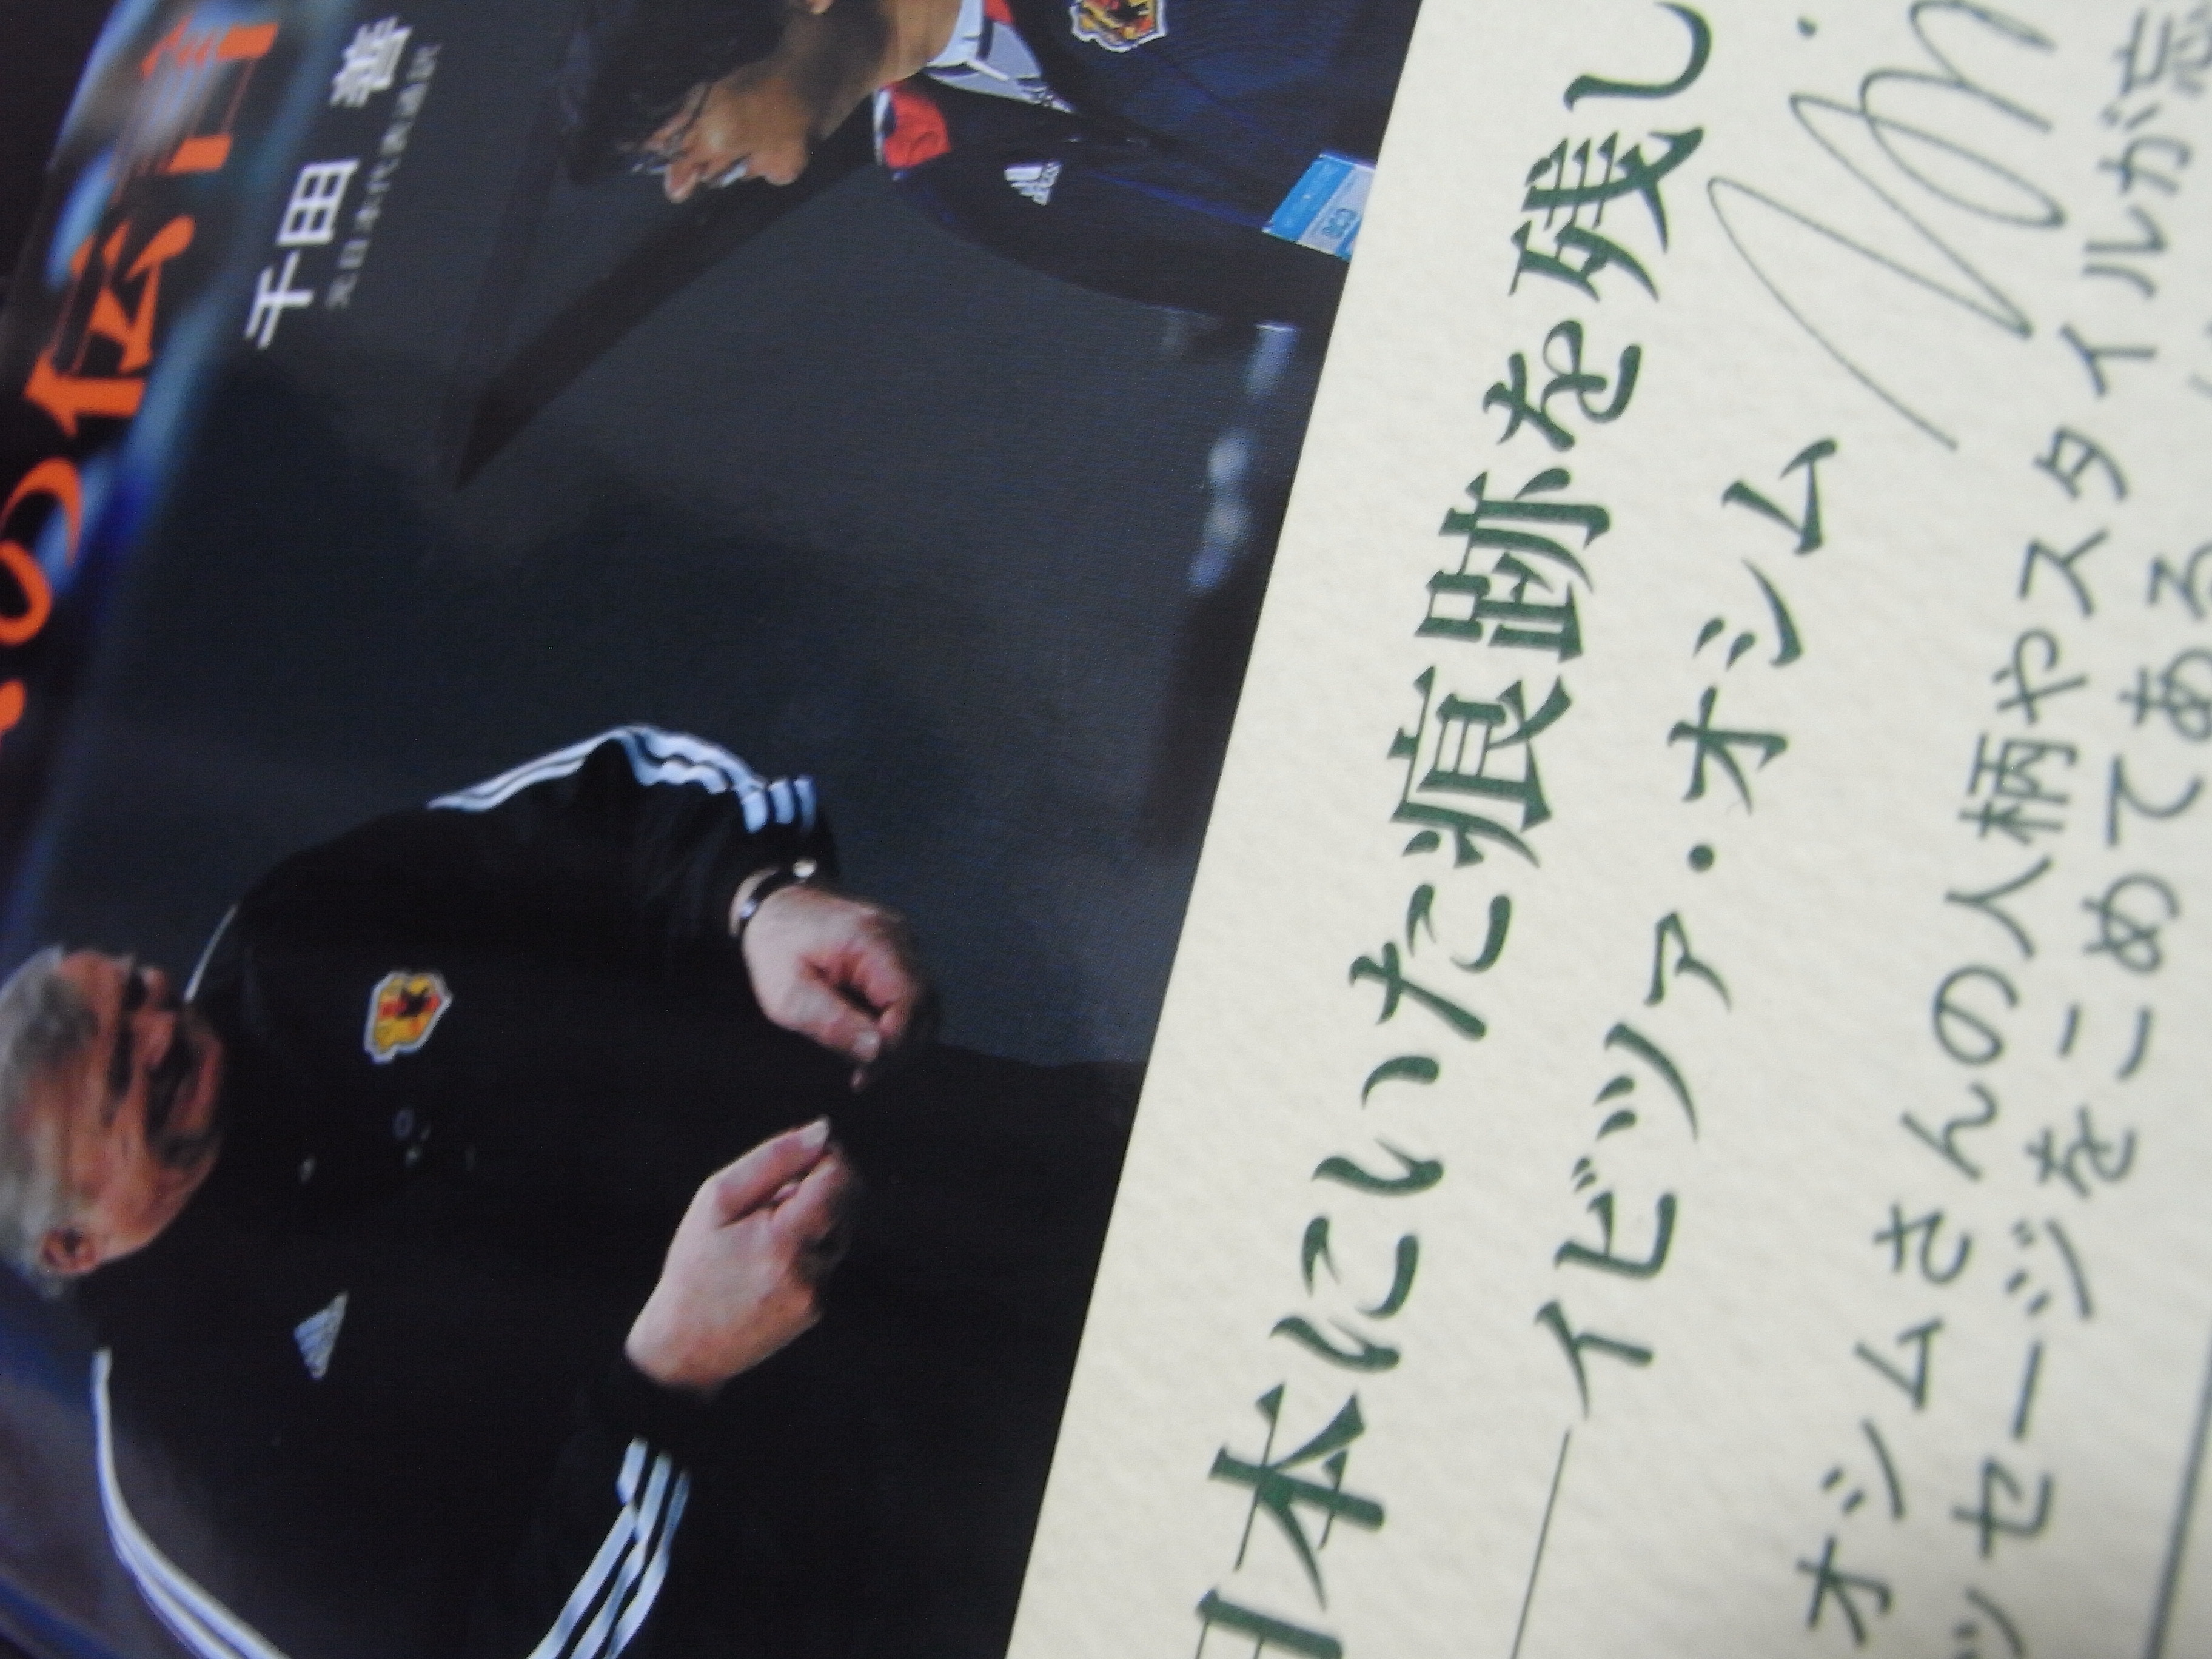 の伝言
千田 善
元日本代表通訳
adidas
日本にいた痕跡を残し
イビツァ・オシム
オシムさんの人柄やスタイルが忘
セージをこめてある